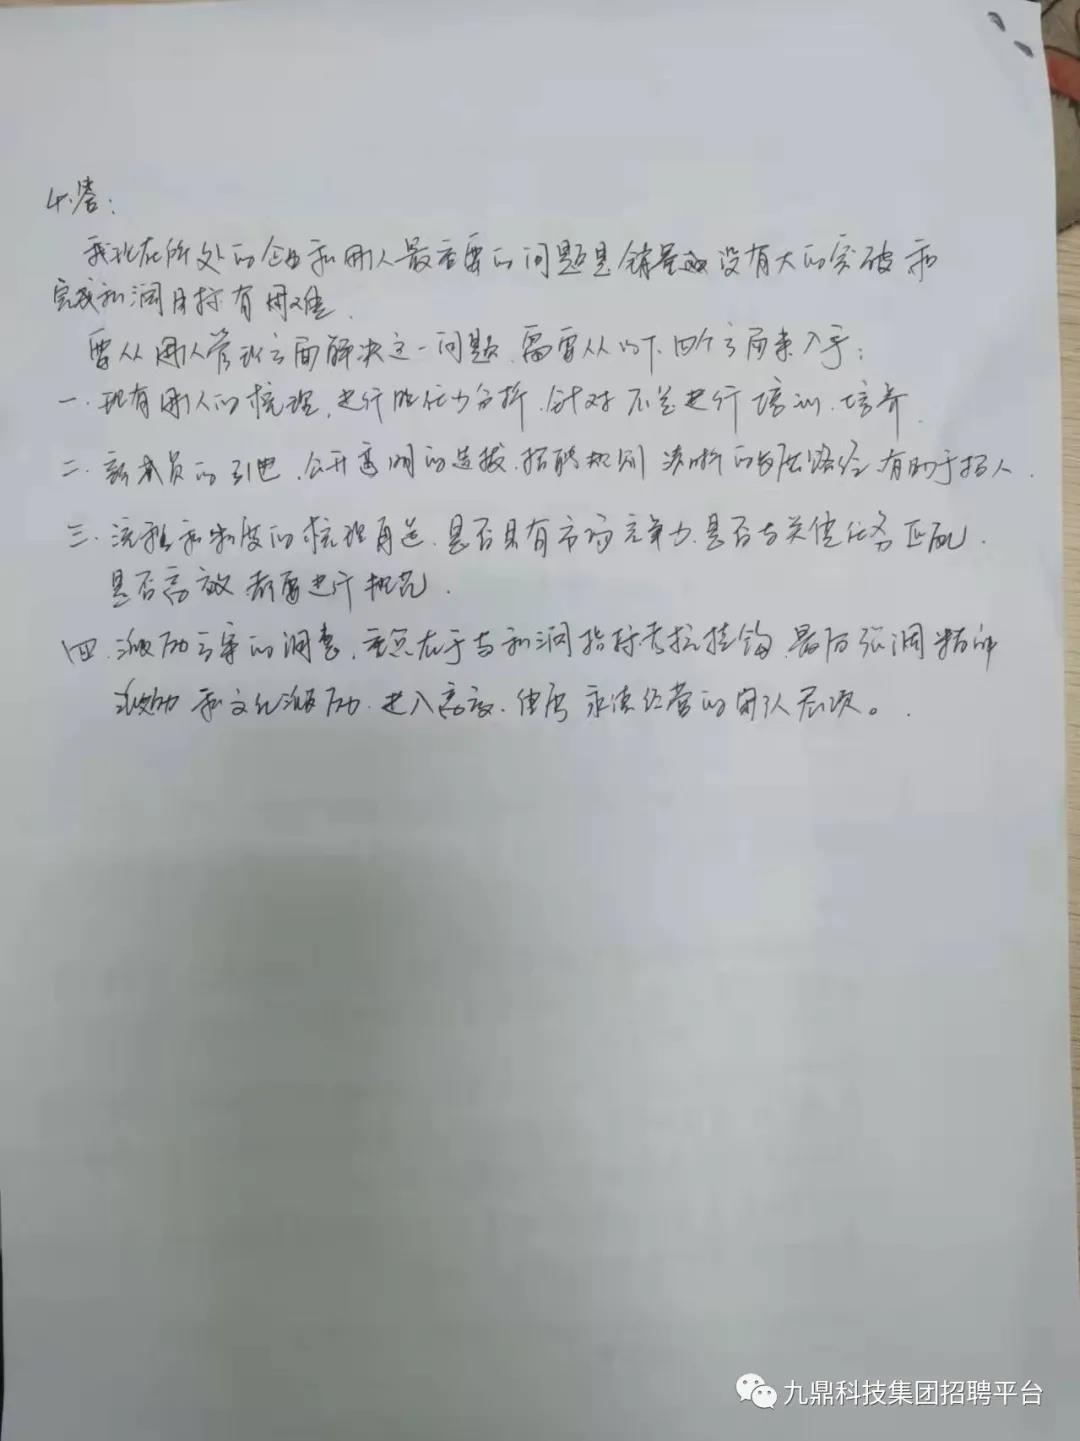 4.答：
我现在所处的企业和用人最重要的问题是销量没有大的突破和
完成利润目标有困难.
要从用人管理方面解决这一问题,需要从以下四个方面来入手：
一.现有用人的梳理,进行胜任力分析.针对不足进行培训.培养.
二.新成员的引进,公开透明的选拔.招聘规则 清晰的发展路径 有助于招人.
三.流程和制度的梳理再造.是否具有市场竞争力.是否与关键任务匹配.
是否高效 都要进行规范.
四.激励方案的调整,重点在于与利润指标考核挂钩.最后强调精神
激励和文化激励.进入高效.使用永续经营的团队层次。.
九鼎科技集团招聘平台